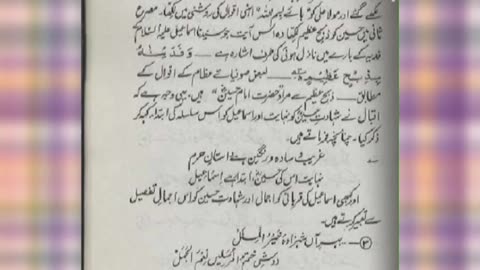 لکھے گئے اور مولا علی کو "بائے بسم اللہ" انہی اقوال کی روشنی میں لکھا۔ مصرع
ثانی میں حسین کو ذبح عظیم لکھنا دہ اس آیت جو سیدنا اسماعیل علیہ السلام
فدیہ کے بارے میں نازل ہوئی کی طرف اشارہ ہے ـــ وَفَدَيْنٰهُ
بِذِبْحٍ عَظِيْمٍ ـــ بعض صوفیائے عظام کے اقوال کے
مطابق ـــ ذبح عظیم سے مراد حضرت امام حسینؓ ہیں۔ یہی وجہ ہے کہ
اقبال نے شہادتِ حسینؓ کو نہایت اور اسماعیل کو اس سلسلہ کی ابتداء کہہ کر
ذکر کیا۔ چنانچہ فرماتے ہیں۔
غریب و سادہ و رنگین ہے داستانِ حرم
نہایت اس کی حسینؓ ابتداء ہے اسماعیل
اور کبھی اسماعیل کی قربانی کو اجمال اور شہادتِ حسین کو اس اجمال کی تفصیل
سے تعبیر کرتے ہیں۔
(۳) ـــ بہر آں شہزادۂ خیر الملل
دوش ختم المرسلیں نعم الجمل